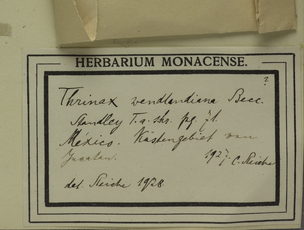 HERBARIUM MONACENSE.
?
Thrinax wendlandiana Becc.
Standley T. a. shs. pg. 71.
México. Küstengebiet von
Yucatan. 1927. C. Reiche
det. Reiche 1928